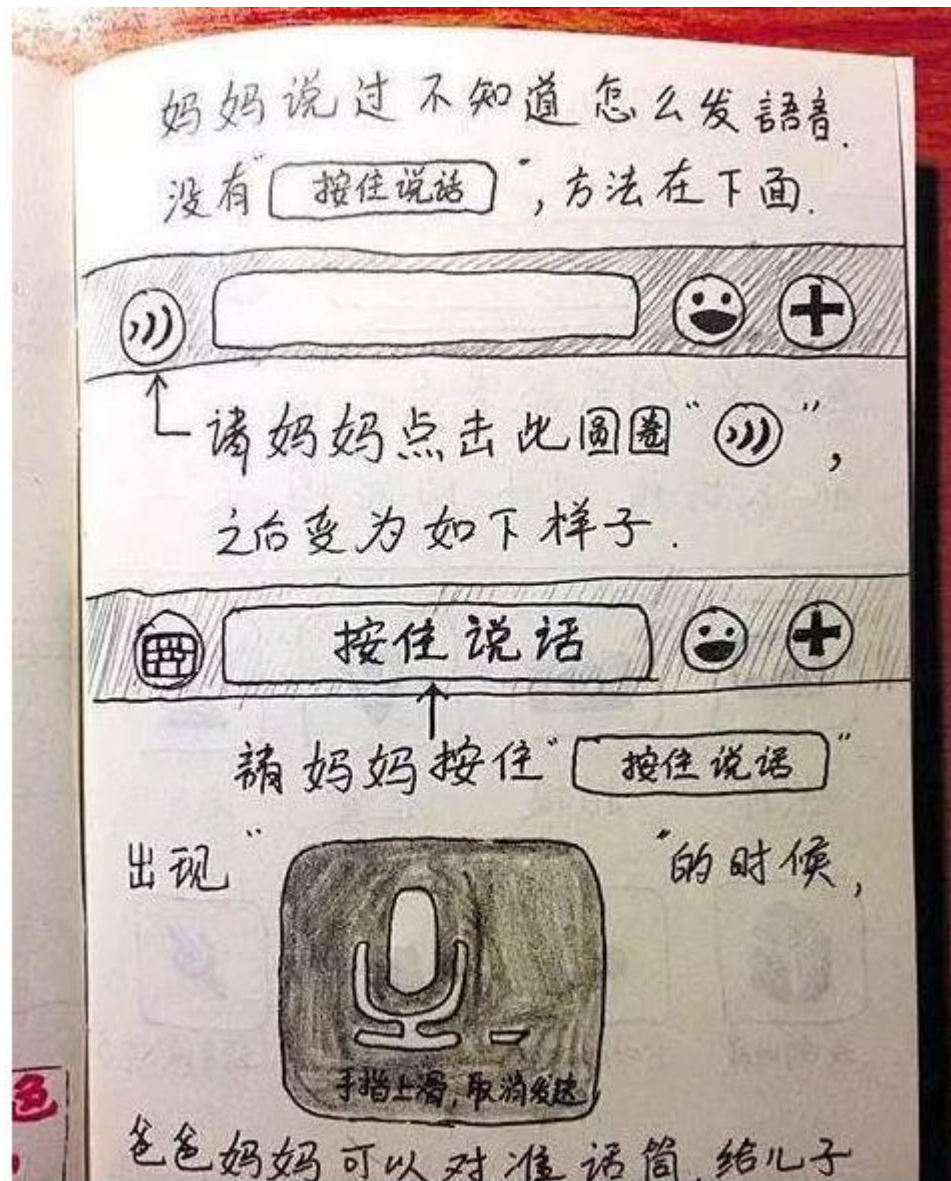 妈妈说过不知道怎么发語音.
没有“按住说话”,方法在下面.
请妈妈点击此圆圈“ ”,
之后变为如下样子.
按住说话
請妈妈按住“按住说话”
出现“ ”的时候,
手指上滑,取消发送
爸爸妈妈可以对准话筒,给儿子
色